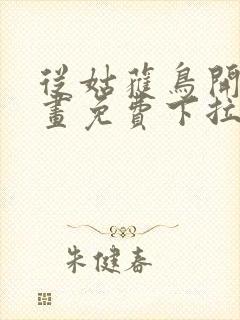 從姑蘿鳥開
畫免費下拉
朱健春